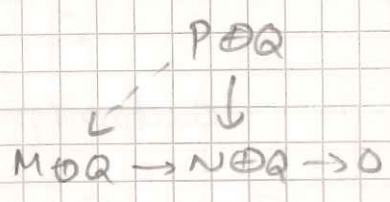 P⊕Q
M⊕Q → N⊕Q → 0